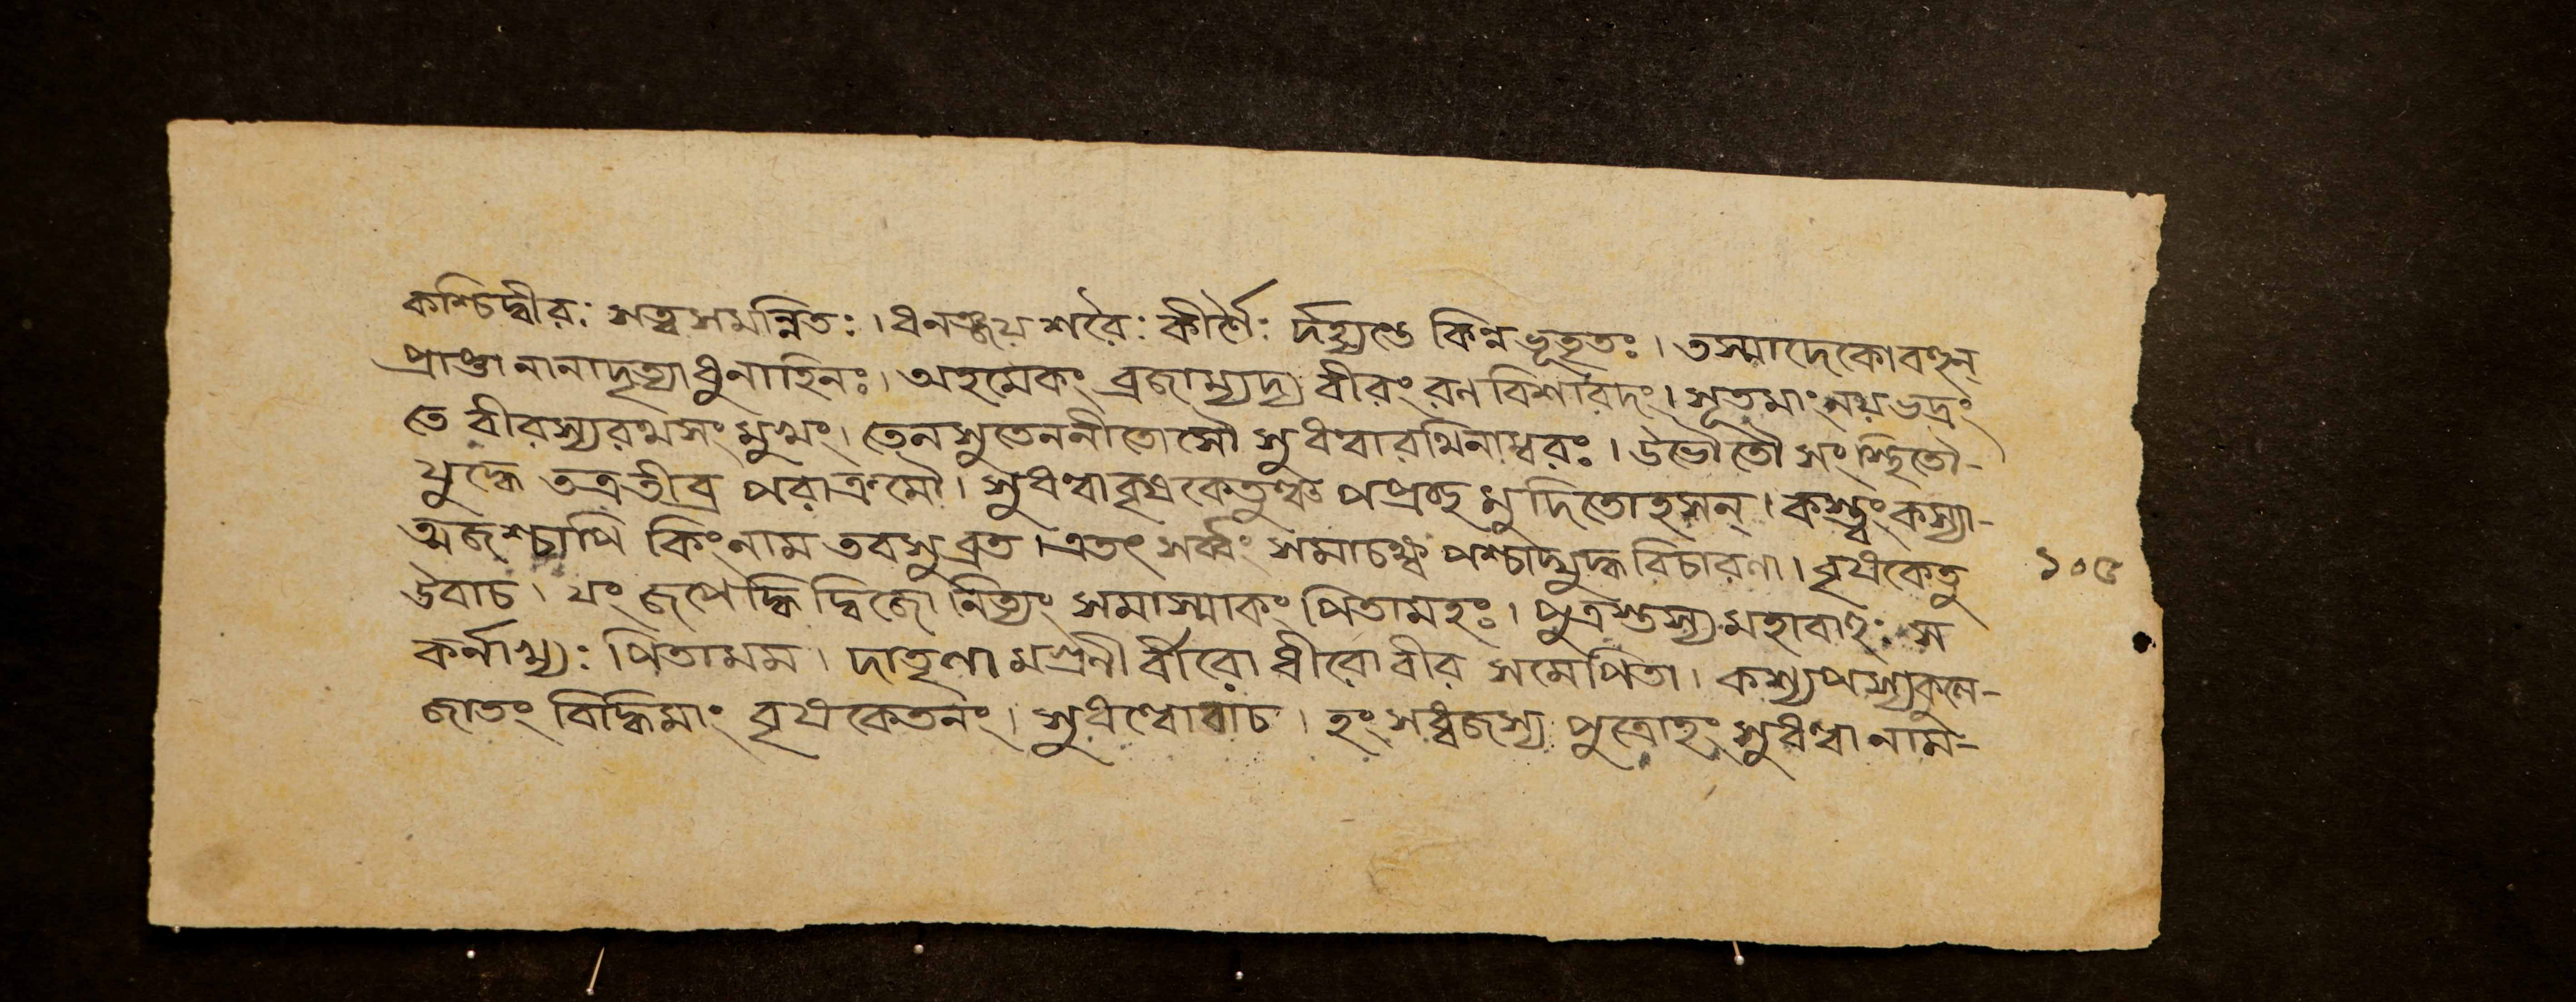 কশ্চিদ্বীরঃ সত্ব সমন্নিতঃ। ধনঞ্জয় শরৈঃ কীর্ণৈঃ কিন্ন ভূভৃতঃ। তস্মাদেকো বহুন্
প্রাপ্তা নানাদৃত্যাধুনাহিনঃ। অহমেকং ব্রজাম্যদ্য বীরং রন বিশারদং। সূত মাং নয় ভদ্রং
তে বীরস্য রথ সংমুখং। তেন সুতেন নীতোসৌ সুধন্বা রথিনাম্বরঃ। উভৌ তৌ সংস্থিতৌ-
যুদ্ধে তত্র তীব্র পরাক্রমৌ। সুধণ্বা বৃষকেতুঞ্চ পপ্রচ্ছ মুদিতো হসন্। কস্ত্বং কস্যা-
ত্মজশ্চাপি কিং নাম তব সুব্রত। এতৎ সর্ব্বং সমাচক্ষ্ব পশ্চাদ্যুদ্ধ বিচারণা। বৃষকেতু
উবাচ। যং জপেদ্ধি দ্বিজো নিত্যং সমাস্মাকং পিতামহঃ। পুত্রস্তস্য মহাবাহুঃ স
কর্নাখ্যঃ পিতা মম। দাতৃণামগ্রনীর্বীরো ধীরো বীর সমে পিতা। কশ্যপস্য কুলে-
জাতং বিদ্ধি মাং বৃষকেতনং। সুধণ্বোবাচ। হংসধ্বজস্য পুত্রোহং সুধণ্বা নাম-
১০৫